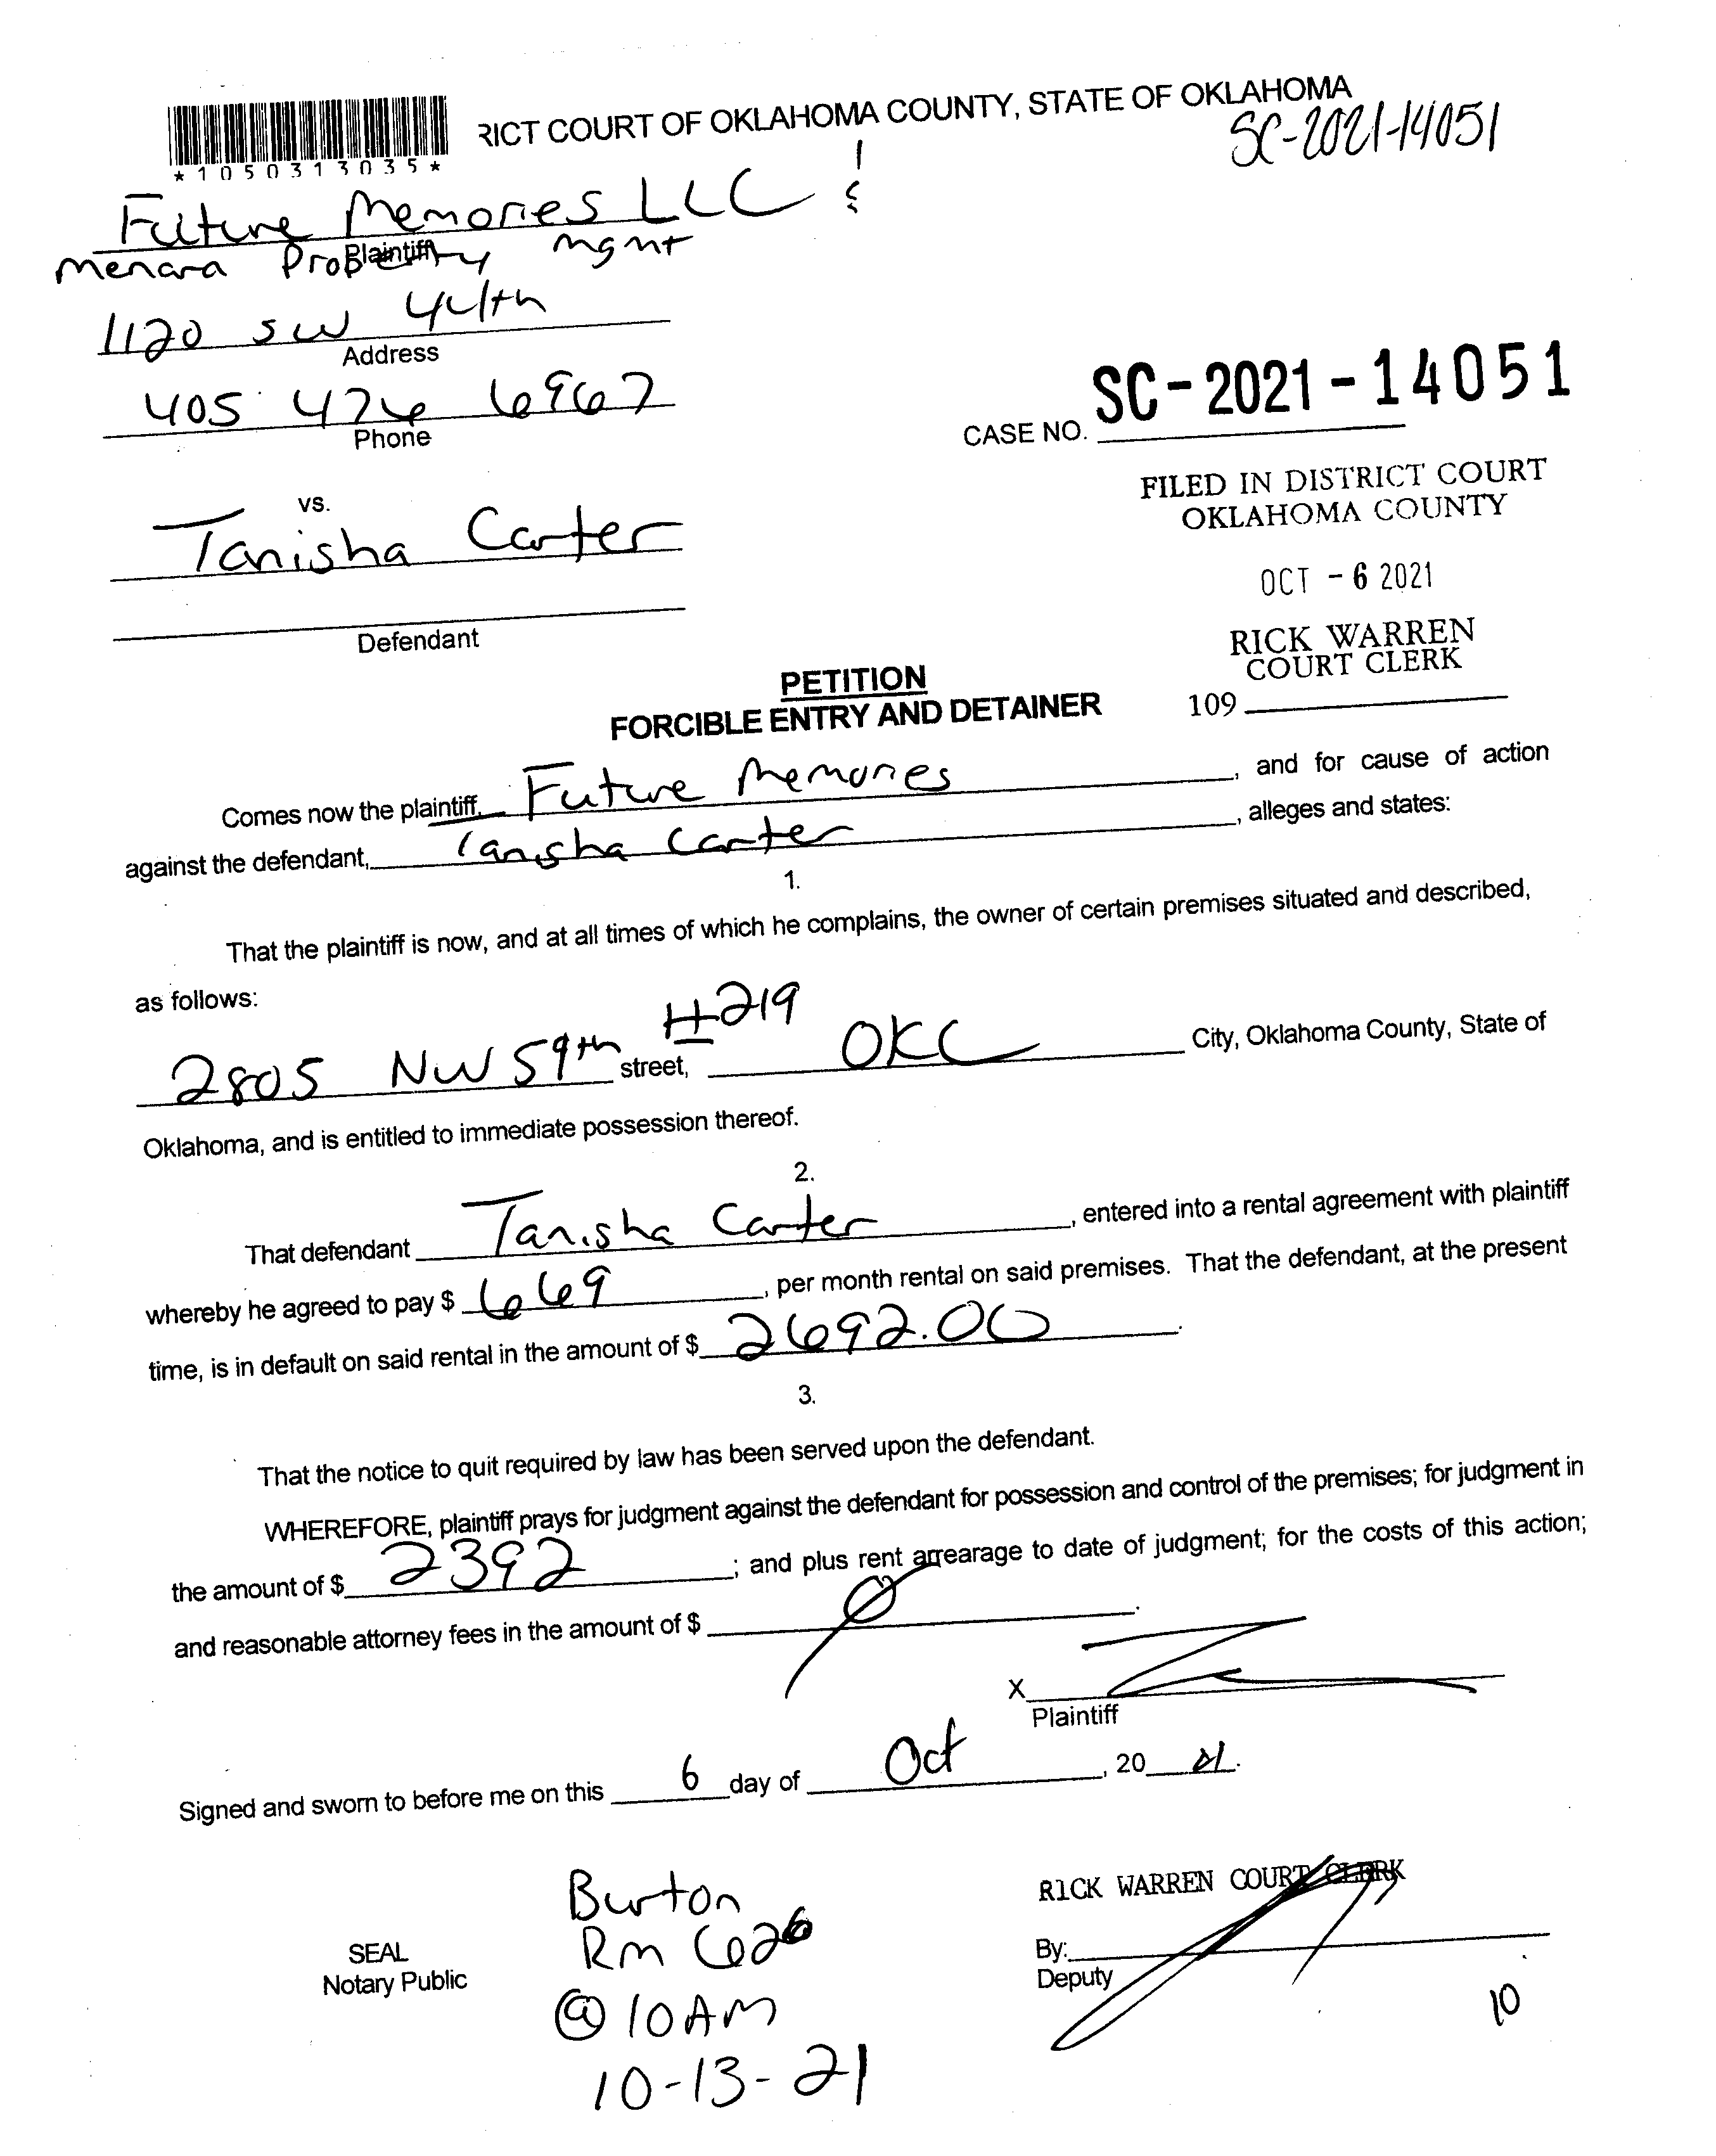 RICT COURT OF OKLAHOMA COUNTY, STATE OF OKLAHOMA
SC-2021-14051
*1050313035*
Future Memories LLC &
Plaintiff
Menara Property Mgmt
1120 SW 44th
Address
405 426 6967
Phone
SC-2021-14051
CASE NO.
vs.
FILED IN DISTRICT COURT
OKLAHOMA COUNTY
Tanisha Carter
OCT - 6 2021
Defendant
RICK WARREN
COURT CLERK
109
PETITION
FORCIBLE ENTRY AND DETAINER
Comes now the plaintiff, Future Memories, and for cause of action
against the defendant, Tanisha Carter, alleges and states:
1.
That the plaintiff is now, and at all times of which he complains, the owner of certain premises situated and described,
as follows:
2805 NW 59th street, #219 OKC City, Oklahoma County, State of
Oklahoma, and is entitled to immediate possession thereof.
2.
That defendant Tanisha Carter, entered into a rental agreement with plaintiff
whereby he agreed to pay $ 669, per month rental on said premises. That the defendant, at the present
time, is in default on said rental in the amount of $ 2692.00.
3.
That the notice to quit required by law has been served upon the defendant.
WHEREFORE, plaintiff prays for judgment against the defendant for possession and control of the premises; for judgment in
the amount of $ 2392; and plus rent arrearage to date of judgment; for the costs of this action;
and reasonable attorney fees in the amount of $ 0.
X
Plaintiff
Signed and sworn to before me on this 6 day of Oct, 20 21.
RICK WARREN COURT CLERK
Burton
Rm 626
SEAL
Notary Public
By:
Deputy
@ 10AM
10
10-13-21